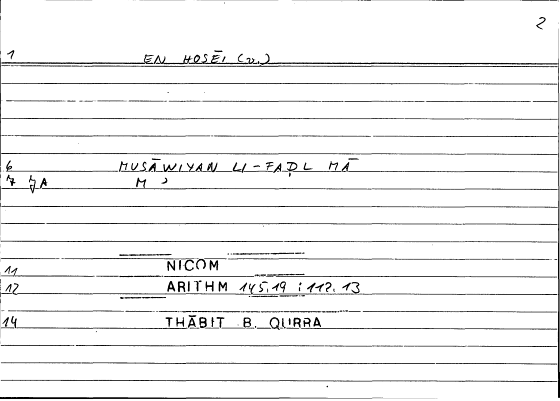 2
1 EN HOSĒI (v.)
6 MUSĀWIYAN LI-FAḌL MĀ
7 M
11 NICOM
12 ARITHM 145.19 : 112.13
14 THĀBIT B. QURRA